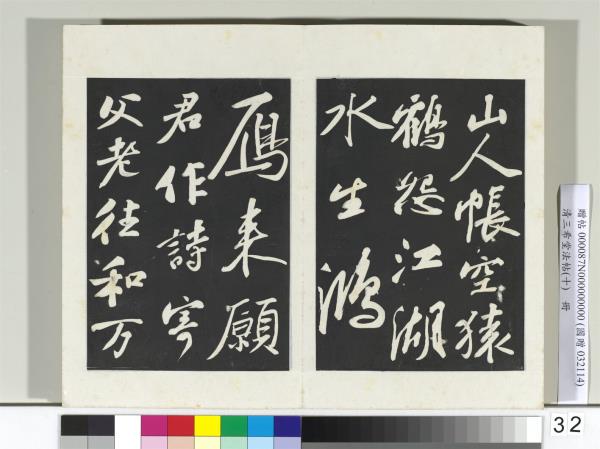 山人帳空猿
鶴怨江湖
水生鴻
雁来願
君作詩寄
父老往和万
贈帖 000087N000000000 (國贈 032114)
清三希堂法帖(十) 冊
32